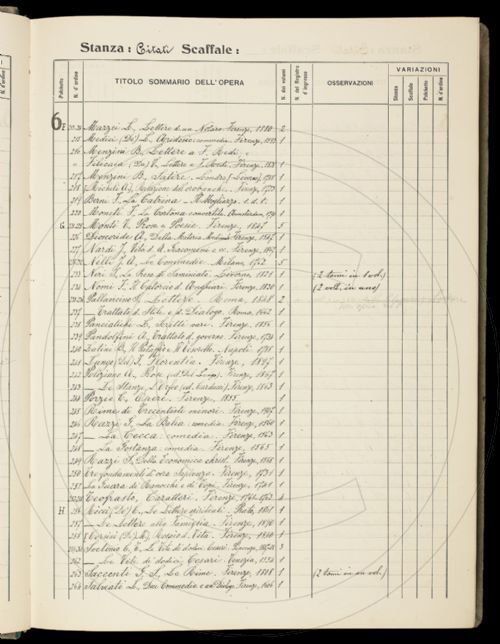 Stanza: Citati Scaffale:
Palchetto
N. d'ordine
TITOLO SOMMARIO DELL'OPERA
N. dei volumi
N. del Registro d'ingresso
OSSERVAZIONI
VARIAZIONI
Stanza
Scaffale
Palchetto
N. d'ordine
6
F Mazzei L., Lettere d'un Notaro. Firenze, 1880 2
215 Medici (De') L., Aridosio: commedia. Firenze, 1
216 Menzini B., Lettere a F. Redi. e
" Filicaia (Da) V., Lettere a F. Redi. Firenze, 1
217 Menzini B., Satire. Londra (Livorno), 1788 1
218 (Micheli A.), Relazione del orobanche. Firenze, 1723 1
219 Berni F., La Catrina. Il Mogliazzo. s. d. t. 1
220 Moneti F., La Cortona convertita. Amsterdam, 1790 1
G Monti V., Prose e Poesie. Firenze, 1847 5
226 Dioscoride A., Della Materia Medicinale. Firenze, 1547 1
227 Nardi J., Vita di A. Giacomini ec. Firenze, 1597 1
Nelli J. A., Le Commedie. Milano, 1762 5
233 Neri I., La Presa di Saminiato. Livorno, 1821 1 (2 tomi in 1 vol.)
234 Nomi F., Il Catorcio d'Anghiari. Firenze, 1830 1 (2 voll. in uno)
Pallavicino S., Lettere. Roma, 1848 2
237 — Trattato d. Stile e d. Dialogo. Roma, 1662 1
238 Panciatichi L., Scritti vari. Firenze, 1856 1
239 Pandolfini A., Trattato d. governo. Firenze, 1734 1
240 Latini B., Il Pataffio e Il Tesoretto. Napoli, 1788 1
241 Lungo (Del) I., Florentia. Firenze, 1897 1
242 Poliziano A., Prose (ed. Del Lungo). Firenze, 1867 1
243 — Le Stanze, L'Orfeo (ed. Carducci). Firenze, 1863 1
244 Porzio C., Opere. Firenze, 1855 1
245 Rime di Trecentisti minori. Firenze, 1907 1
246 Razzi G., La Balia: comedia. Firenze, 1560 1
247 — La Cecca: comedia. Firenze, 1563 1
248 — La Gostanza: comedia. Firenze, 1565 1
249 Razzi S., Della Economica christ. Firenze, 1568 1
250 Tre fondamenti d'ora sapienza. Firenze, 1731 1
251 La Guerra di Ranocchi e di Topi. Firenze, 1788 1
Teofrasto, Caratteri. Firenze, 1761-1763 4
H 256 Ricci (De') C., Le Lettere spirituali. Prato, 1861 1
257 — Le Lettere alla Famiglia. Firenze, 1890 1
258 (Corsini (De') A.), Rosaio d. Vita. Firenze, 1840 1
Svetonio C. T., Le Vite de' dodici Cesari. Firenze, 3
262 — Le Vite di dodici Cesari. Venezia, 1738 1
263 Saccenti G. S., Le Rime. Firenze, 1808 1 (2 tomi in un vol.)
264 Salviati L., Due Commedie e un Dialogo. Firenze, 1606 1